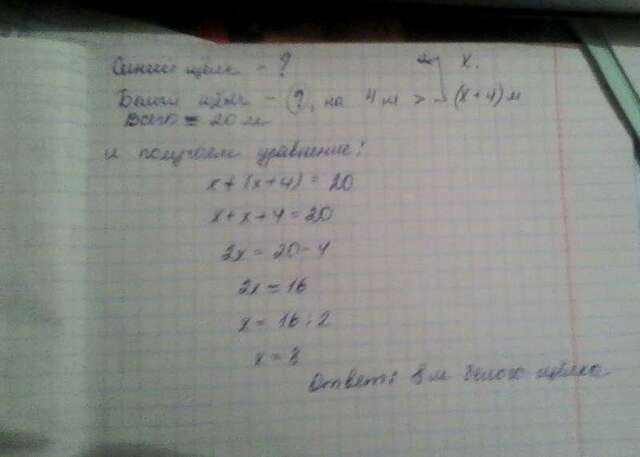 Синий шёлк - ? x.
Белый шёлк - ?, на 4 м > (x+4) м
Всего = 20 м
и получаем уравнение:
x+(x+4) = 20
x+x+4=20
2x = 20-4
2x = 16
x = 16:2
x = 8
Ответ: 8 м белого шёлка